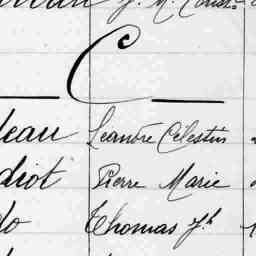 C
eau Leandre Célestin
diot Pierre Marie
do Thomas Jh